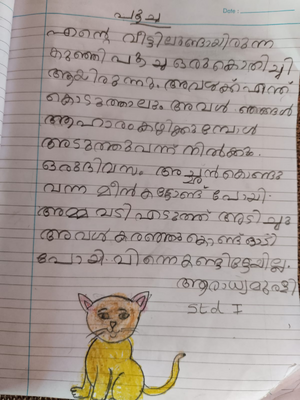 പൂച്ച
Date :
എന്റെ വീട്ടിലുണ്ടായിരുന്ന
കുഞ്ഞി പൂച്ച ഒരു കൊതിച്ചി
ആയിരുന്നു. അവൾക്ക് എന്ത്
കൊടുത്താലും അവൾ ഞങ്ങൾ
ആഹാരം കഴിക്കുമ്പോൾ
അടുത്തുവന്ന് നിൽക്കും.
ഒരു ദിവസം അച്ഛൻ കൊണ്ടു
വന്ന മീൻ കട്ടോണ്ട് പോയി.
അമ്മ വടി എടുത്ത് അടിച്ചു
അവൾ കരഞ്ഞുകൊണ്ട് ഓടി
പോയി. പിന്നെ കണ്ടിട്ടേയില്ല.
ആരാധ്യമുരളി
Std I